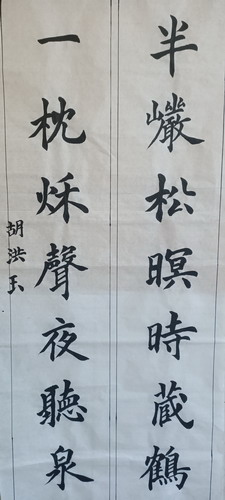 半巖松暝時藏鶴
一枕秌聲夜聽泉
胡洪玉